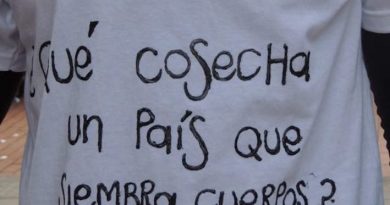 ¿QUÉ COSECHA
UN PAÍS QUE
SIEMBRA CUERPOS?